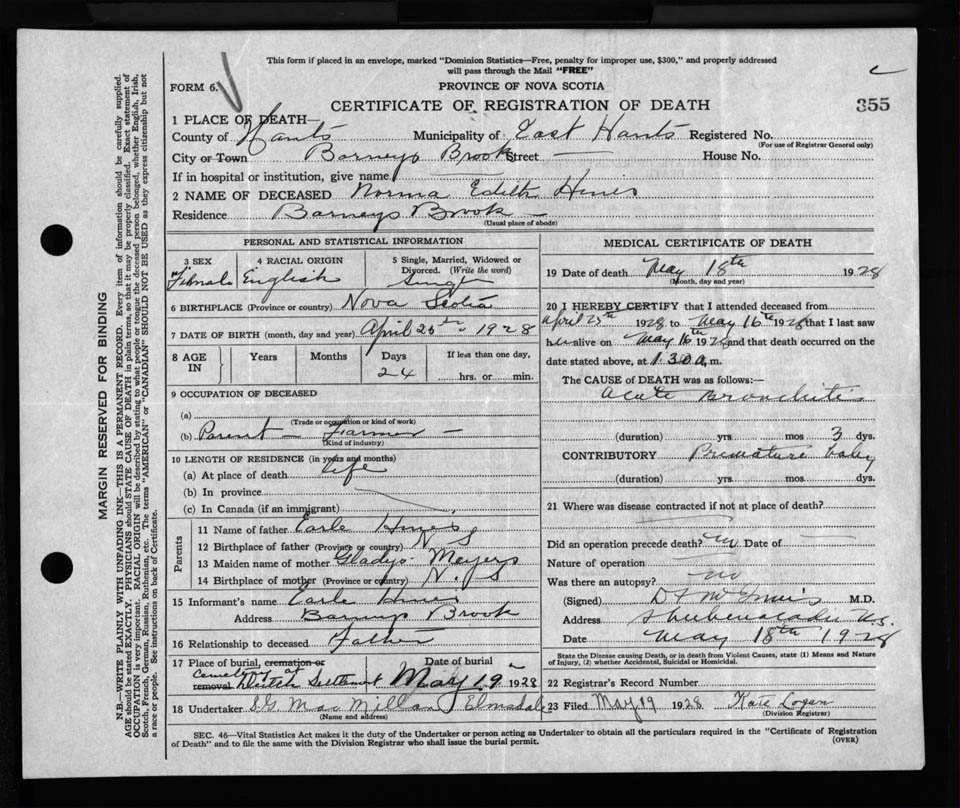 This form if placed in an envelope, marked "Dominion Statistics—Free, penalty for improper use, $300," and properly addressed
will pass through the Mail "FREE"
FORM 6.
PROVINCE OF NOVA SCOTIA
CERTIFICATE OF REGISTRATION OF DEATH
355
1 PLACE OF DEATH—
County of Hants Municipality of East Hants Registered No.
(For use of Registrar General only)
City or Town Barneys Brook Street — House No.
If in hospital or institution, give name
2 NAME OF DECEASED Norma Edith Hines
Residence Barneys Brook —
(Usual place of abode)
MARGIN RESERVED FOR BINDING
N.B.—WRITE PLAINLY WITH UNFADING INK—THIS IS A PERMANENT RECORD. Every item of information should be carefully supplied.
AGE should be stated EXACTLY. PHYSICIANS should STATE CAUSE OF DEATH in plain terms, so that it may be properly classified. Exact statement of
OCCUPATION is very important. RACIAL ORIGIN will be described by stating to what people or tongue the deceased person belonged, whether English, Irish,
Scotch, French, German, Russian, Ruthenian, etc. The terms "AMERICAN" or "CANADIAN" SHOULD NOT BE USED as they express citizenship but not
a race or people. See instructions on back of Certificate.
PERSONAL AND STATISTICAL INFORMATION
3 SEX
4 RACIAL ORIGIN
5 Single, Married, Widowed or
Divorced. (Write the word)
Female English Single
6 BIRTHPLACE (Province or country) Nova Scotia
7 DATE OF BIRTH (month, day and year) April 25th 1928
8 AGE IN
Years
Months
Days
If less than one day,
24
hrs. or min.
9 OCCUPATION OF DECEASED
(a)
(Trade or occupation or kind of work)
(b) Parent — Farmer —
(Kind of industry)
10 LENGTH OF RESIDENCE (in years and months)
(a) At place of death life
(b) In province
(c) In Canada (if an immigrant)
Parents
11 Name of father Earle Hines
12 Birthplace of father (Province or country) N S
13 Maiden name of mother Gladys Meyers
14 Birthplace of mother (Province or country) N. S
15 Informant's name Earle Hines
Address Barneys Brook
16 Relationship to deceased Father
17 Place of burial, cremation or
Date of burial
cemetery at
removal Dutch Settlement May 19 1928
18 Undertaker MacMillan Elmsdale
(Name and address)
MEDICAL CERTIFICATE OF DEATH
19 Date of death May 18th 1928
(Month, day and year)
20 I HEREBY CERTIFY that I attended deceased from
April 25th 1928 to May 16th 1928 that I last saw
her alive on May 16th 1928 and that death occurred on the
date stated above, at 1.30 a.m.
The CAUSE OF DEATH was as follows:—
Acute Bronchitis
(duration) yrs. mos 3 dys.
CONTRIBUTORY Premature baby
(duration) yrs. mos. dys.
21 Where was disease contracted if not at place of death?
Did an operation precede death? no Date of
Nature of operation
Was there an autopsy? no
(Signed) M.D.
Address Shubenacadie N.S.
Date May 18th 1928
State the Disease causing Death, or in death from Violent Causes, state (1) Means and Nature
of Injury, (2) whether Accidental, Suicidal or Homicidal.
22 Registrar's Record Number
23 Filed May 19 1928 Kate Logan
(Division Registrar)
SEC. 46—Vital Statistics Act makes it the duty of the Undertaker or person acting as Undertaker to obtain all the particulars required in the "Certificate of Registration
of Death" and to file the same with the Division Registrar who shall issue the burial permit.
(OVER)